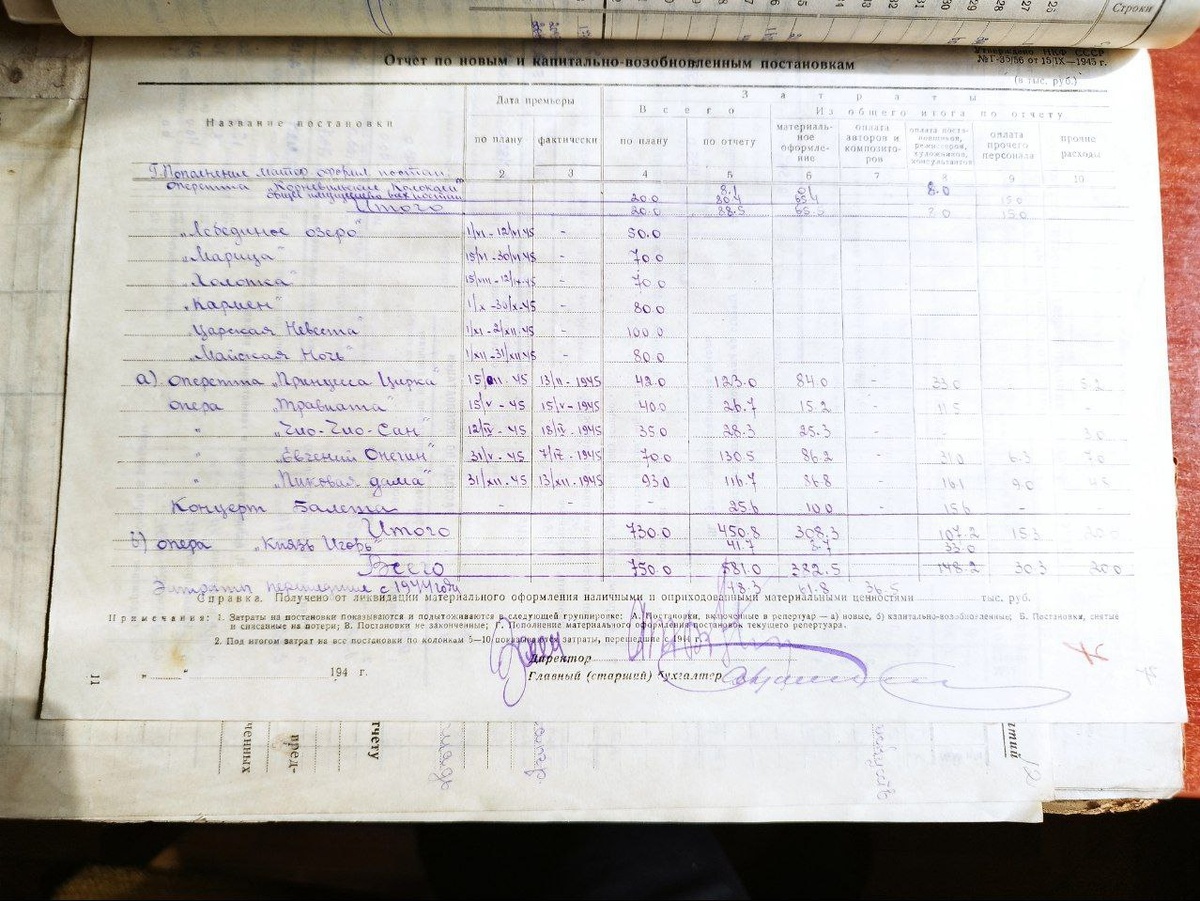 Строки
Утверждено НКФ СССР
№ Г-35/56 от 15/IX—1943 г.
Отчет по новым и капитально-возобновленным постановкам
(в тыс. руб.)
Название постановки Дата премьеры Затраты
Всего Из общего итога по отчету
по плану фактически по плану по отчету материальное оформление оплата авторов и композиторов оплата постановщиков, режиссеров, художников, консультантов оплата прочего персонала прочие расходы
2 3 4 5 6 7 8 9 10
Г. Пополнение матер оформл постан.
Оперетта „Корневильские Колокола" 8.1 01 8.0
20.0 80.4 65.4 15.0
Итого 20.0 88.5 65.5 8 0 15.0
„Лебединое озеро" 1/VI - 12/VI 45 - 50.0
„Марица" 15/VI - 30/VI 45 - 70.0
„Холопка" 15/VIII - 12/IX 45 - 70.0
„Кармен" 1/X - 30/X 45 - 80.0
Царская Невеста" 1/XI - 2/XII 45 - 100.0
„Майская Ночь" 1/XII - 31/XII 45 - 80.0
а) оперетта „Принцесса Цирка" 45 13/II - 1945 42.0 123.0 84.0 - 33 0 - 5.2
опера „Травиата" 15/V - 45 15/V - 1945 40.0 26.7 15.2 - 11 5 - -
" „Чио-Чио-Сан" 12/IV - 45 18/IV - 1945 35.0 28.3 25.3 - - - 3 0
" „Евгений Онегин" 31/V - 45 7/IX - 1945 70.0 130.5 86.2 - 31.0 6.3 7.0
" „Пиковая дама" 31/XII - 45 13/XII - 1945 93.0 116.7 86.8 - 16.1 9.0 4.8
Концерт Балета - - - 25.6 10.0 - 15.6 - -
Итого 730.0 450.8 308.3 107.2 15.3 20.0
б) опера „Князь Игорь" 41.7 8.7 33.0
Всего 750.0 581.0 382.5 148.2 30.3 20.0
Затраты перешедшие с 1944 года 148.3 61.8 36.5
Справка. Получено от ликвидации материального оформления наличными и оприходованными материальными ценностями тыс. руб.
Примечания: 1. Затраты на постановки показываются и подытоживаются в следующей группировке: А. Постановки, включенные в репертуар — а) новые, б) капитально-возобновленные; Б. Постановки, снятые
и списанные на потери; В. Постановки не законченные; Г. Пополнение материального оформления постановок текущего репертуара.
2. Под итогом затрат на все постановки по колонкам 5—10 показываются затраты, перешедшие с 1944 г.
Директор
„ " 194 г. Главный (старший) бухгалтер
11
ченных
пред-
тчету
ытий
12